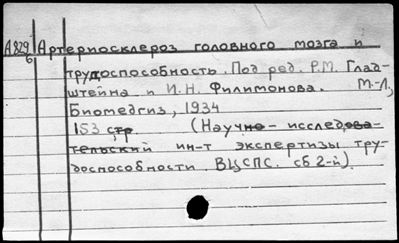 А829 Артериосклероз головного мозга и
б трудоспособность. Под ред. Р.М. Глад-
штейна и И.Н. Филимонова. М.-Л.,
Биомедгиз, 1934
153 стр. (Научно-исследова-
тельский ин-т экспертизы тру-
доспособности ВЦСПС. сб 2-й).